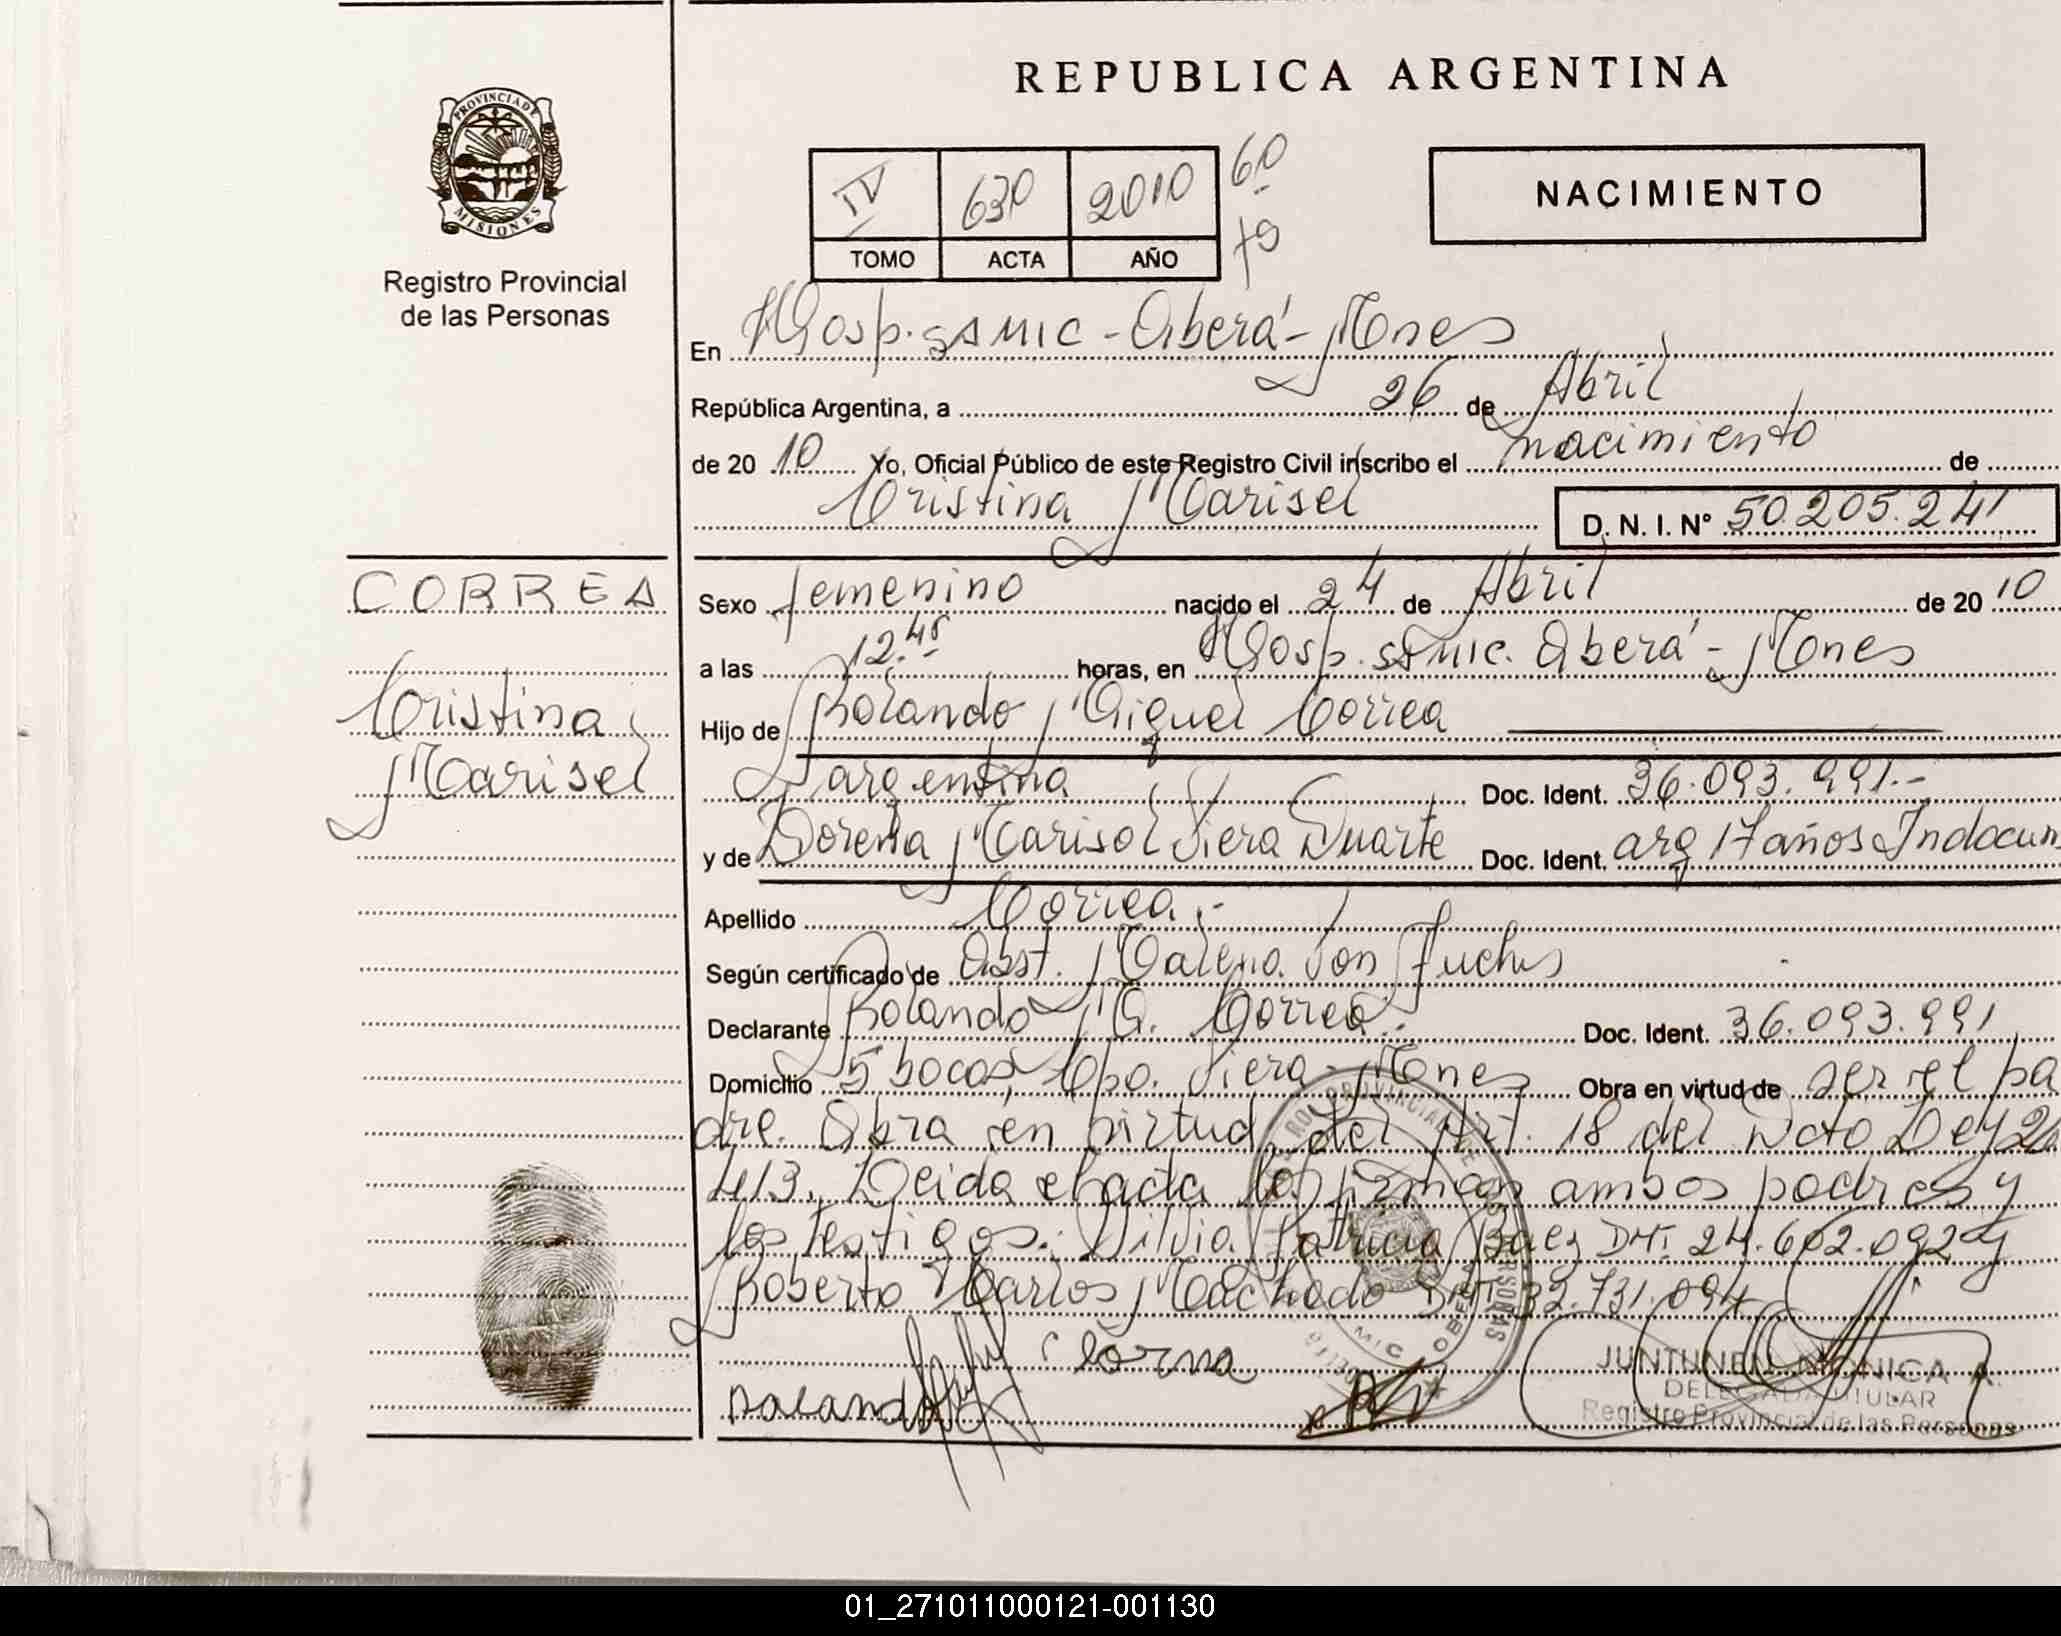 REPUBLICA ARGENTINA
PROVINCIA DE
MISIONES
Registro Provincial
de las Personas
IV 630 2010 60
TOMO ACTA AÑO
NACIMIENTO
En Hosp. SAMIC - Oberá - Mnes
República Argentina, a 26 de Abril
de 20 10 Yo, Oficial Público de este Registro Civil inscribo el nacimiento de
Cristina Marisel D. N. I. Nº 50.205.241
CORREA
Cristina
Marisel
Sexo femenino nacido el 24 de Abril de 20 10
a las 12.45 horas, en Hosp. SAMIC. Oberá - Mnes
Hijo de Rolando Miguel Correa
argentina Doc. Ident. 36.093.991.-
y de Lorena Marisol Viera Duarte Doc. Ident. arg 17 años Indocum
Apellido Correa.-
Según certificado de Obst. Von Fuchs
Declarante Rolando M. Correa Doc. Ident. 36.093.991
Domicilio 5 bocas, Cpo. Viera - Mnes Obra en virtud de ser el pa
dre. Obra en virtud del Art. 18 del Dcto Ley 20
413. Leida el acta la firman ambos padres y
los testigos: Silvia Patricia Baez DNI. 24.602.092 y
Roberto Carlos Machado DNI 32.731.094
JUNTUNEN MONICA A.
DELEGADA TITULAR
Registro Provincial de las Personas
01_271011000121-001130